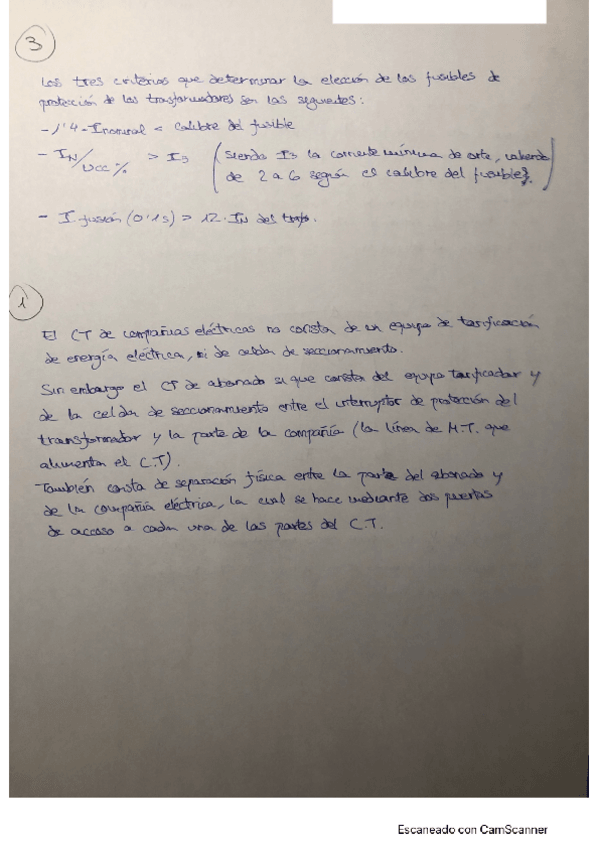 3
Los tres criterios que determinar la elección de los fusibles de
protección de los transformadores son las siguientes:
- 1'4 · Inominal = calibre del fusible
- IN/UCC% > I3 (siendo I3 la corriente mínima de corte, valiendo
de 2 a 6 según es calibre del fusible).
- I fusión (0'1s) > 12 · IN del trafo.
1
El CT de compañías eléctricas no consta de un equipo de tarificación
de energía eléctrica, ni de celda de seccionamiento.
Sin embargo el CT de abonado si que consta del equipo tarificador y
de la celda de seccionamiento entre el interruptor de protección del
transformador y la parte de la compañía (la línea de M.T. que
alimentan el C.T).
También consta de separación física entre la parte del abonado y
de la compañía eléctrica, la cual se hace mediante dos puertas
de acceso a cada una de las partes del C.T.
Escaneado con CamScanner